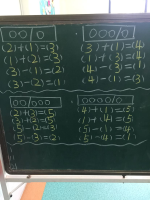 (2)+(1)=(3)
(1)+(2)=(3)
(3)-(1)=(2)
(3)-(2)=(1)
(3)+(1)=(4)
(1)+(3)=(4)
(4)-(3)=(1)
(4)-(1)=(3)
(2)+(3)=(5)
(3)+(2)=(5)
(5)-(2)=(3)
(5)-(3)=(2)
(4)+(1)=(5)
(1)+(4)=(5)
(5)-(1)=(4)
(5)-(4)=(1)